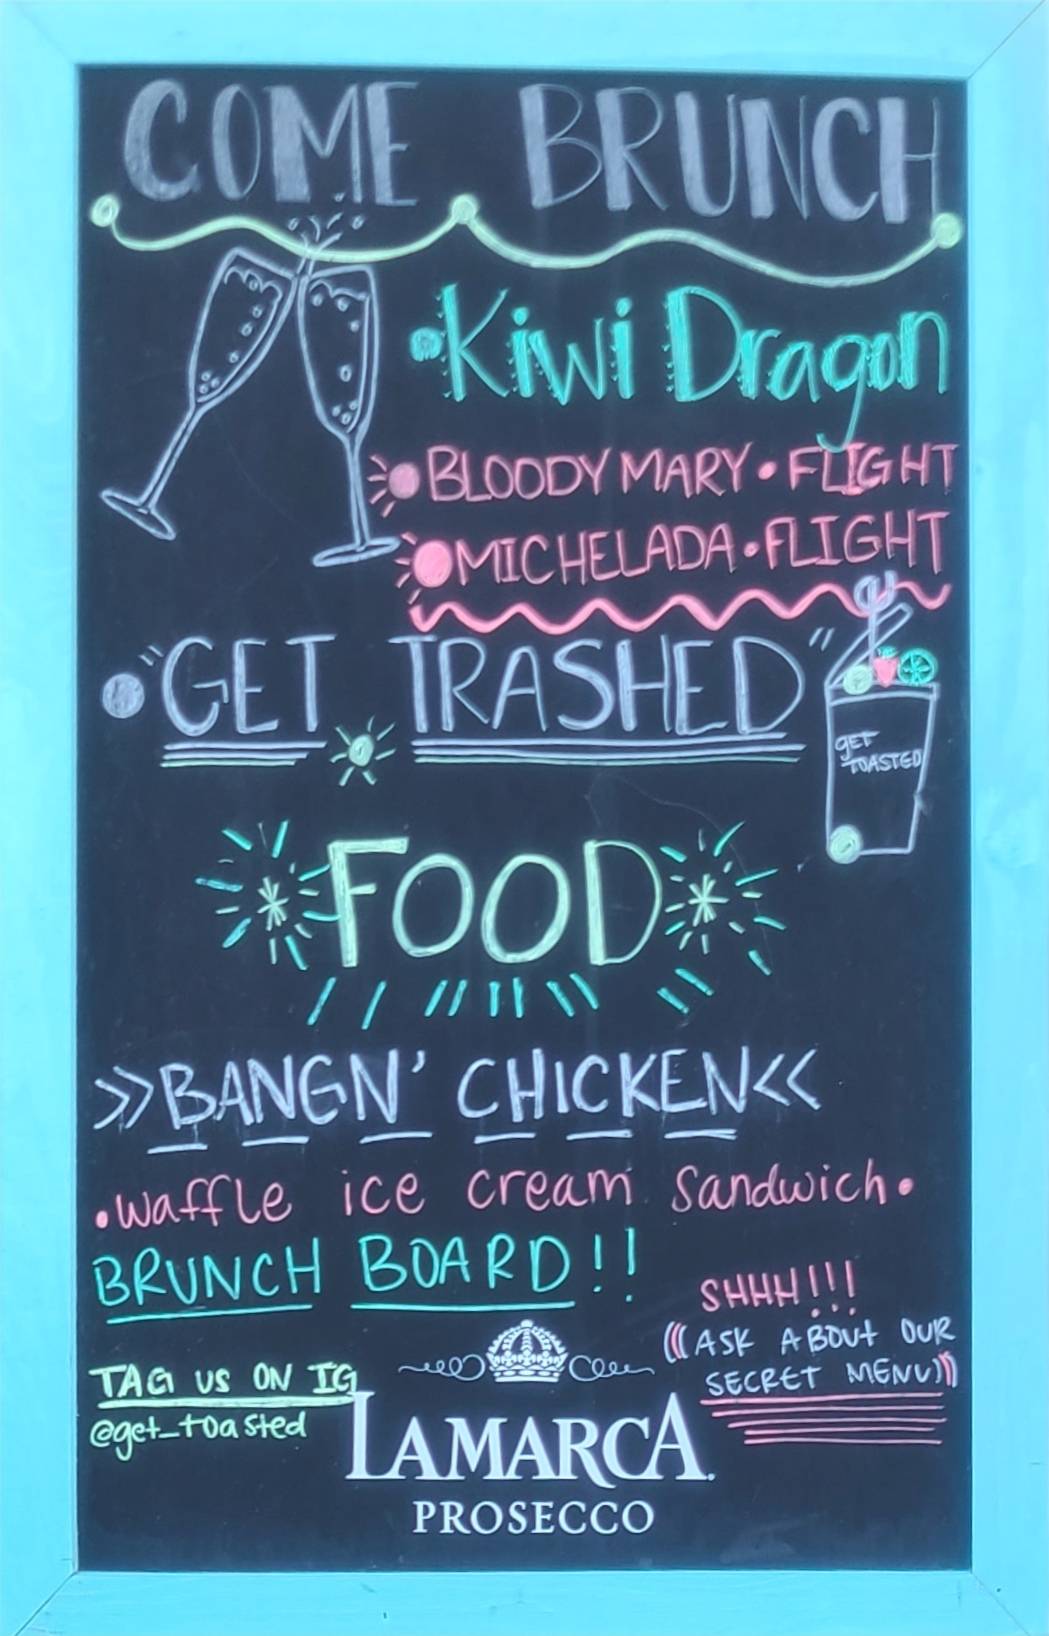 COME BRUNCH
•Kiwi Dragon
•BLOODY MARY • FLIGHT
•MICHELADA • FLIGHT
•"GET TRASHED"
GET
TOASTED
*FOOD*
>>BANGN' CHICKEN<<
•waffle ice cream sandwich•
BRUNCH BOARD!!
SHHH!!!
((ASK ABOUt OUR
SECRET MENU))
TAG US ON IG
@get_toasted
LAMARCA
PROSECCO